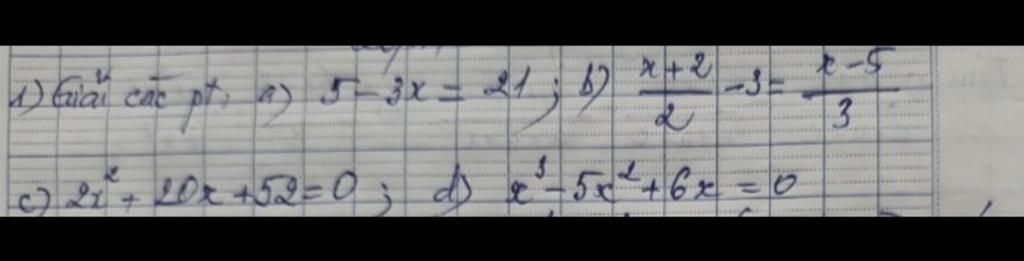 1) Giải các pt: a) 5 - 3x = 21 ; b) \frac{x+2}{2} - 3 = \frac{x-5}{3}
c) 2x² + 20x + 52 = 0 ; d) x³ - 5x² + 6x = 0